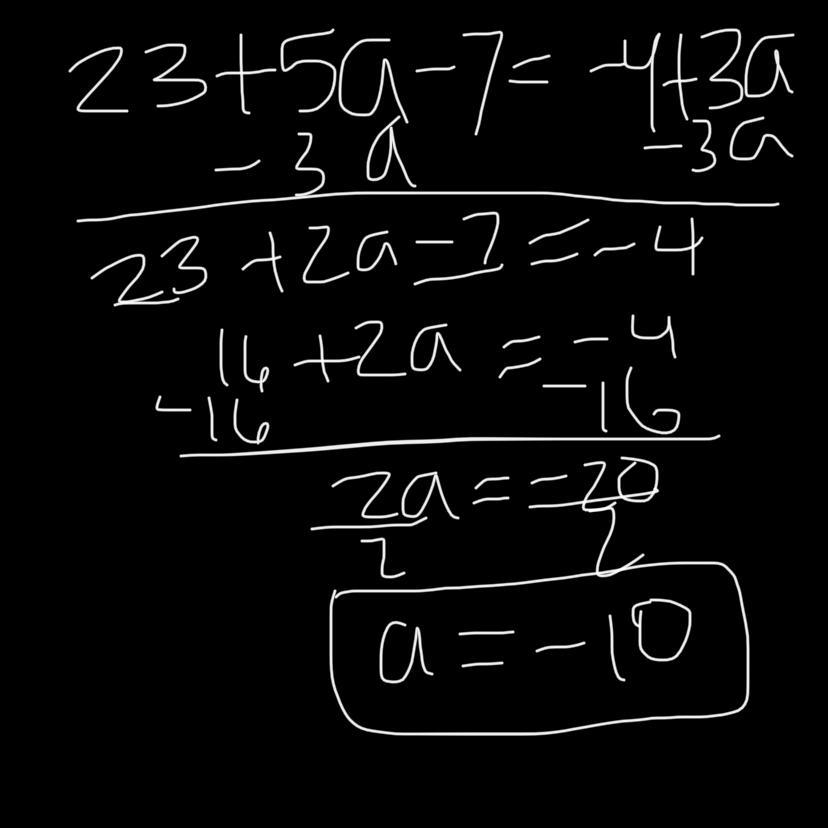 23+5a-7= -4+3a
-3a -3a
23 +2a-7=-4
16+2a = -4
-16 -16
2a=-20
2 2
a=-10